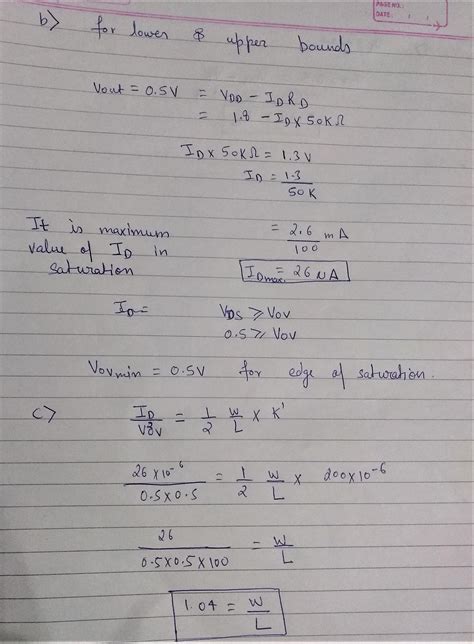 PAGE NO.:
DATE: / /
b) for lower & upper bounds
Vout = 0.5V = VDD - IDRD
= 1.8 - ID x 50KΩ
ID x 50KΩ = 1.3V
ID = 1.3/50K
It is maximum value of ID in saturation
= 2.6/100 mA
IDmax. = 26 uA
ID =
VDS ≥ Vov
0.5 ≥ Vov
Vovmin = 0.5V for edge of saturation.
c) ID/V²ov = 1/2 W/L x K'
26 x 10^-6/0.5x0.5 = 1/2 W/L x 200x10^-6
26/0.5x0.5x100 = W/L
1.04 = W/L